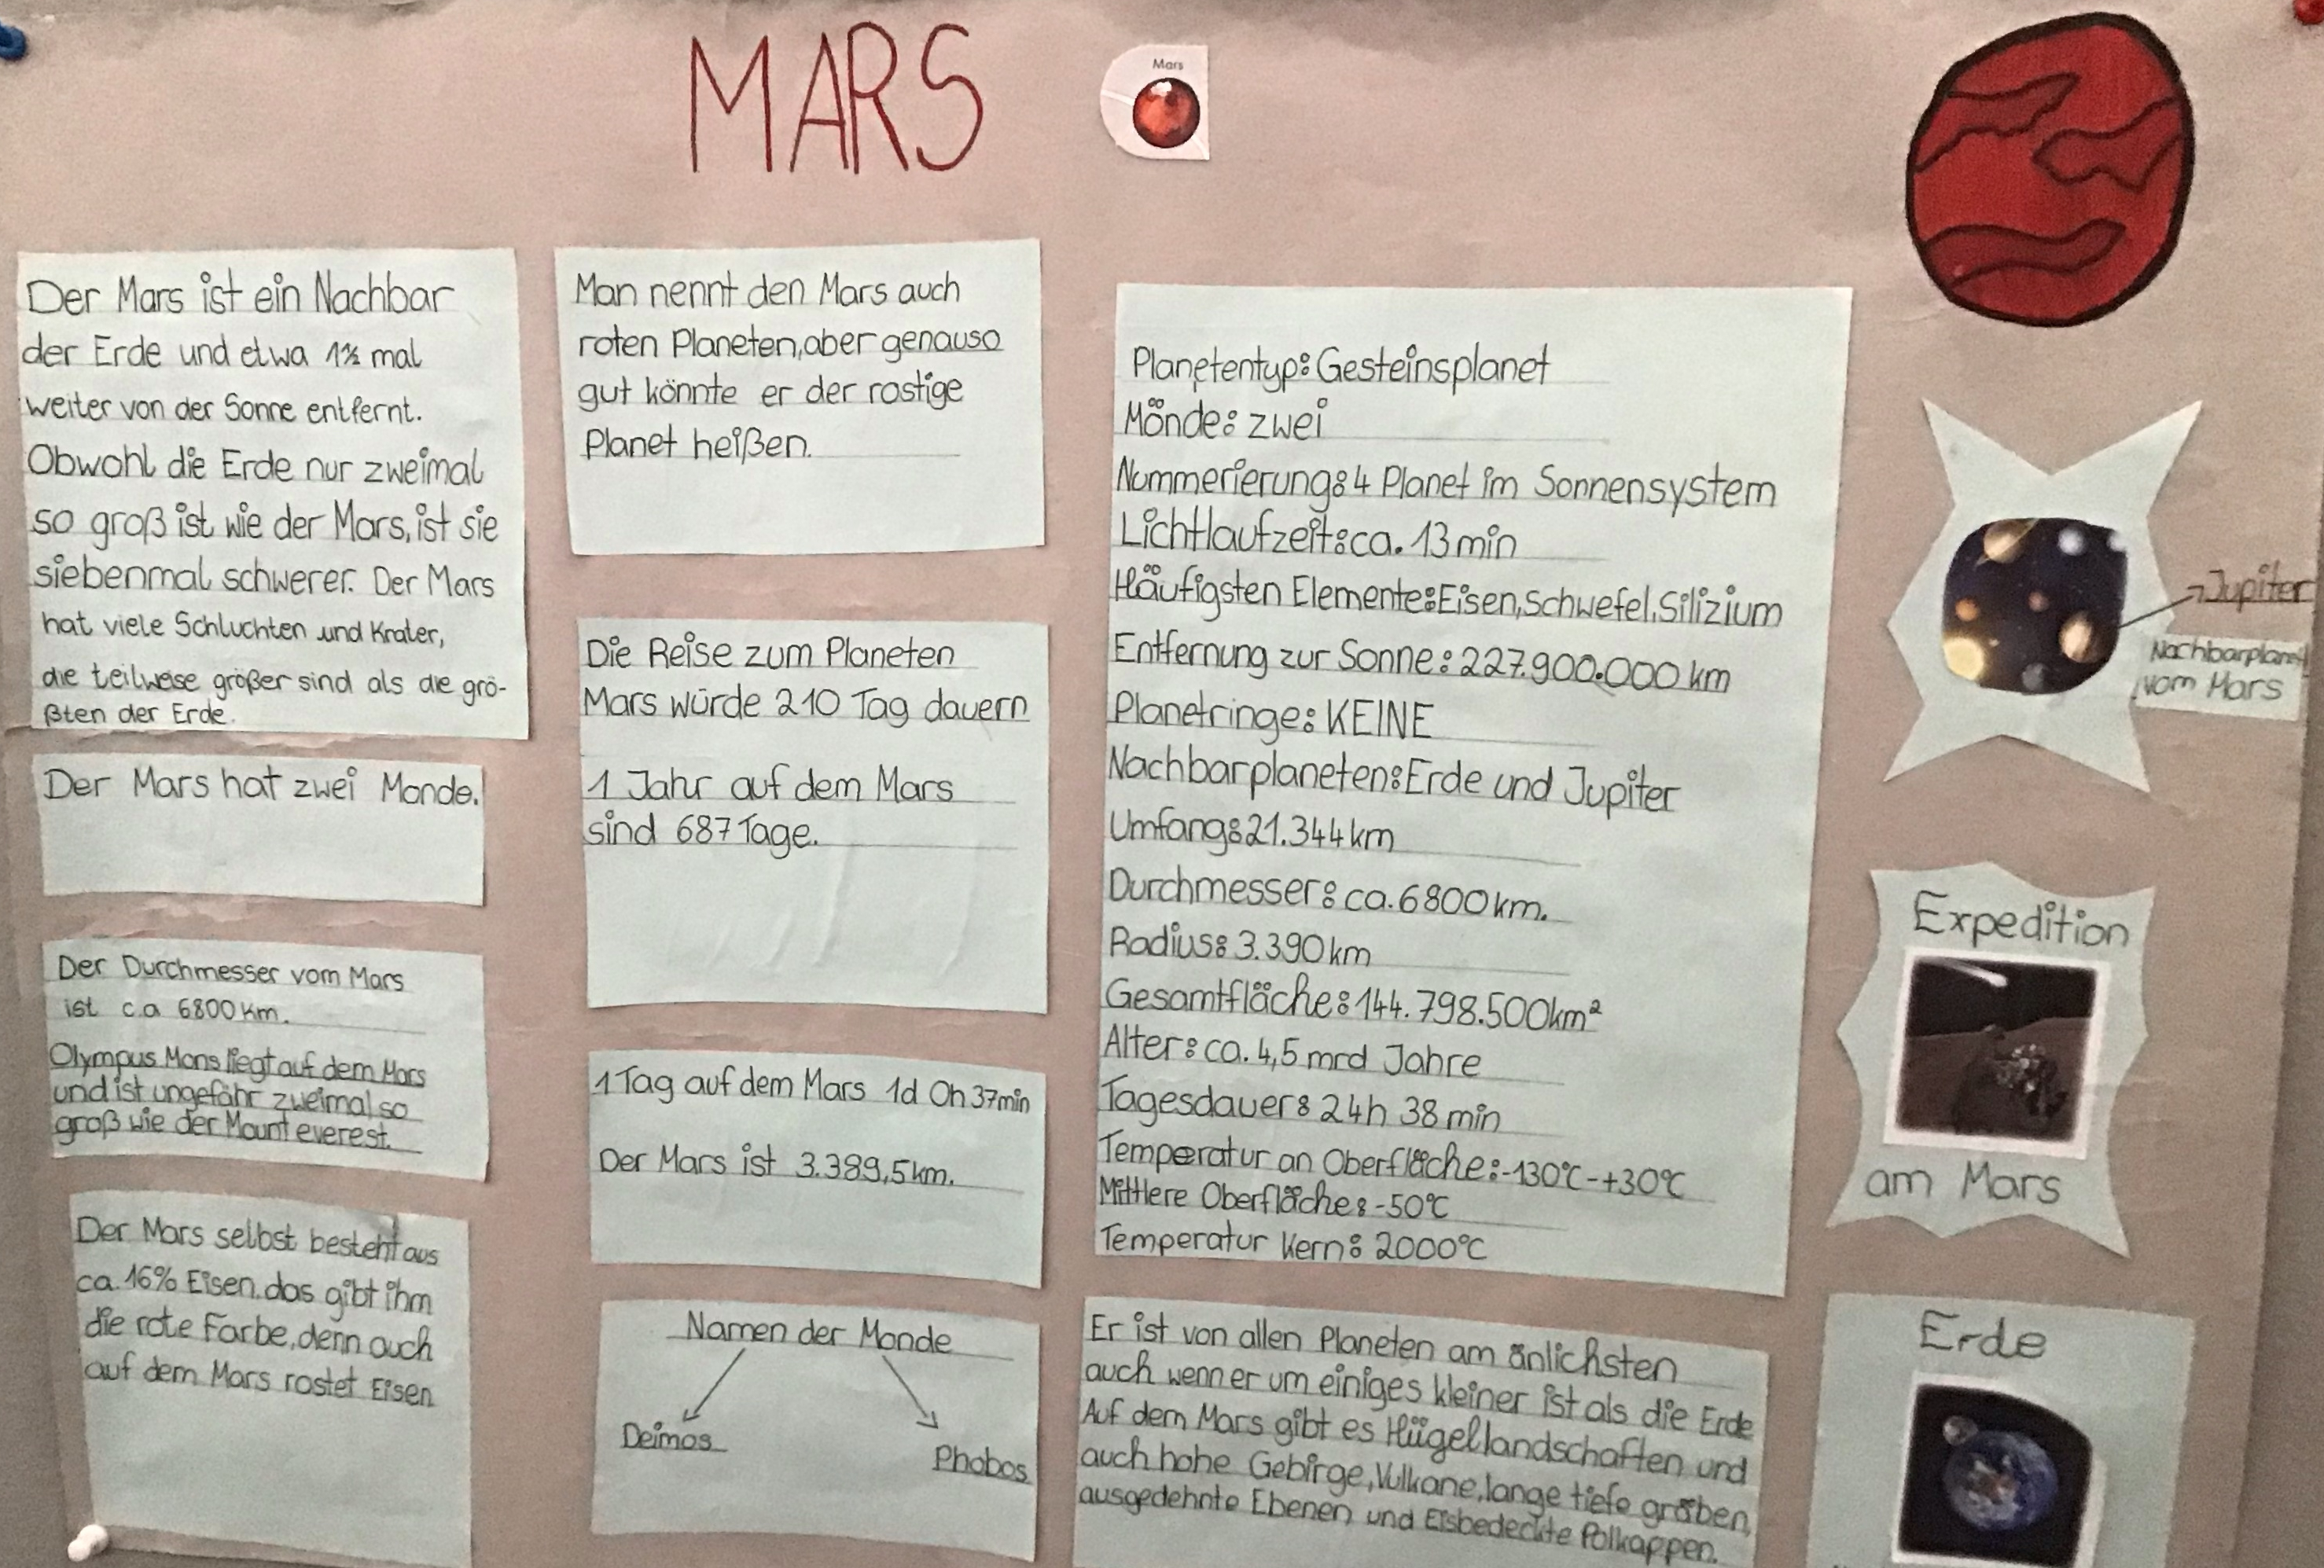 MARS
Mars
Der Mars ist ein Nachbar
der Erde und etwa 1½ mal
weiter von der Sonne entfernt.
Obwohl die Erde nur zweimal
so groß ist wie der Mars, ist sie
siebenmal schwerer. Der Mars
hat viele Schluchten und Krater,
die teilweise größer sind als die grö-
ßten der Erde.
Der Mars hat zwei Monde.
Der Durchmesser vom Mars
ist c.a 6800 km.
Olympus Mons liegt auf dem Mars
und ist ungefähr zweimal so
groß wie der Mount everest.
Der Mars selbst besteht aus
ca. 16% Eisen, das gibt ihm
die rote Farbe, denn auch
auf dem Mars rostet Eisen
Man nennt den Mars auch
roten Planeten, aber genauso
gut könnte er der rostige
Planet heißen.
Die Reise zum Planeten
Mars würde 210 Tag dauern
1 Jahr auf dem Mars
sind 687 Tage.
1 Tag auf dem Mars 1d 0h 37min
Der Mars ist 3.389,5 km.
Namen der Monde
Deimos
Phobos
Planetentyp: Gesteinsplanet
Mönde: zwei
Nummerierung: 4 Planet im Sonnensystem
Lichtlaufzeit: ca. 13 min
Häufigsten Elemente: Eisen, Schwefel, Silizium
Entfernung zur Sonne: 227.900.000 km
Planetringe: KEINE
Nachbarplaneten: Erde und Jupiter
Umfang: 21.344 km
Durchmesser: ca. 6800 km.
Radius: 3.390 km
Gesamtfläche: 144.798.500 km²
Alter: ca. 4,5 mrd Jahre
Tagesdauer: 24h 38 min
Temperatur an Oberfläche: -130°C - +30°C
Mittlere Oberfläche: -50°C
Temperatur Kern: 2000°C
Er ist von allen Planeten am änlichsten
auch wenn er um einiges kleiner ist als die Erde
Auf dem Mars gibt es Hügellandschaften und
auch hohe Gebirge, Vulkane, lange tiefe gräben,
ausgedehnte Ebenen, und Eisbedeckte Polkappen.
Jupiter
Nachbarplanet
vom Mars
Expedition
am Mars
Erde